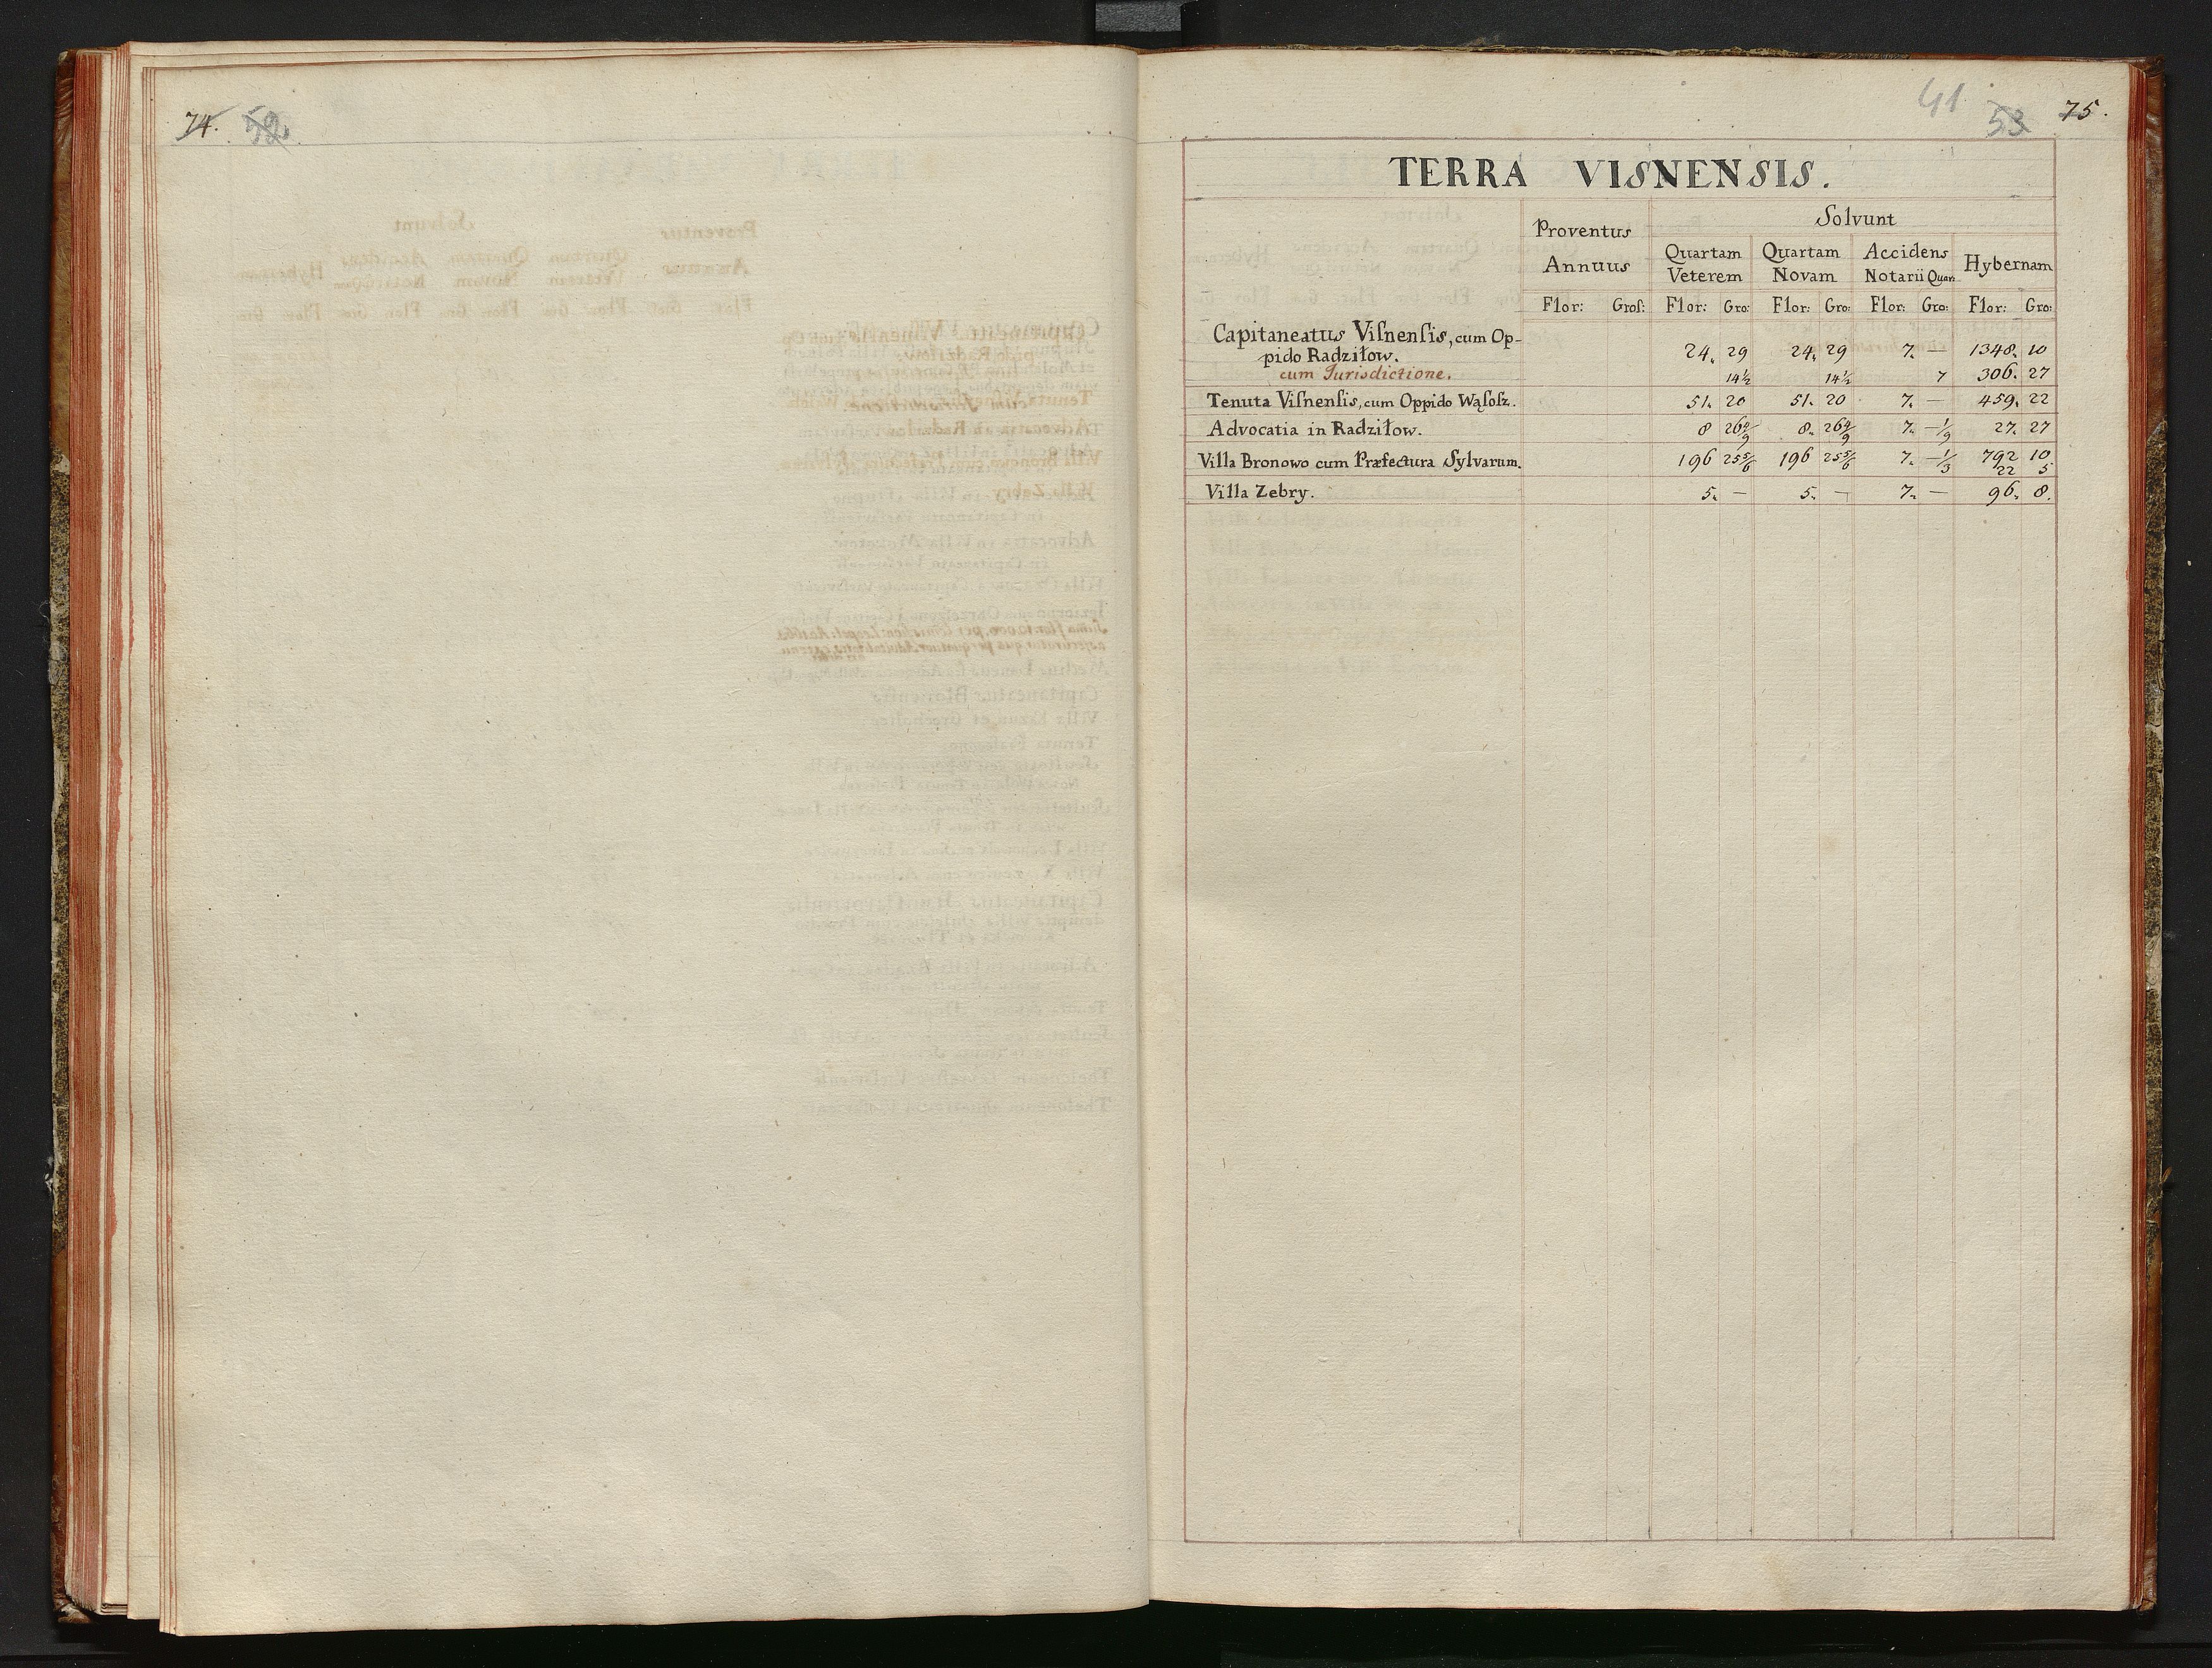 74. 52.
41 53 75.
TERRA VISNENSIS.
Proventus Annuus
Solvunt
Quartam Veterem
Quartam Novam
Accidens Notarii Quar:
Hybernam
Flor: Groſ: Flor: Gro: Flor: Gro: Flor: Gro: Flor: Gro:
Capitaneatus Viſnenſis, cum Op-
pido Radziłow. 24. 29 24. 29 7. — 1348. 10
cum Jurisdictione. 14½ 14½ 7 306. 27
Tenuta Viſnenſis, cum Oppido Wąſoſz. 51. 20 51. 20 7. — 459. 22
Advocatia in Radziłow. 8 26 4/9 8. 26 4/9 7. — 1/9 27. 27
Villa Bronowo cum Præfectura Sylvarum. 196 25 5/6 196 25 5/6 7. — 1/3 792 10
22 5
Villa Zebry. 5. — 5. — 7. — 96. 8.